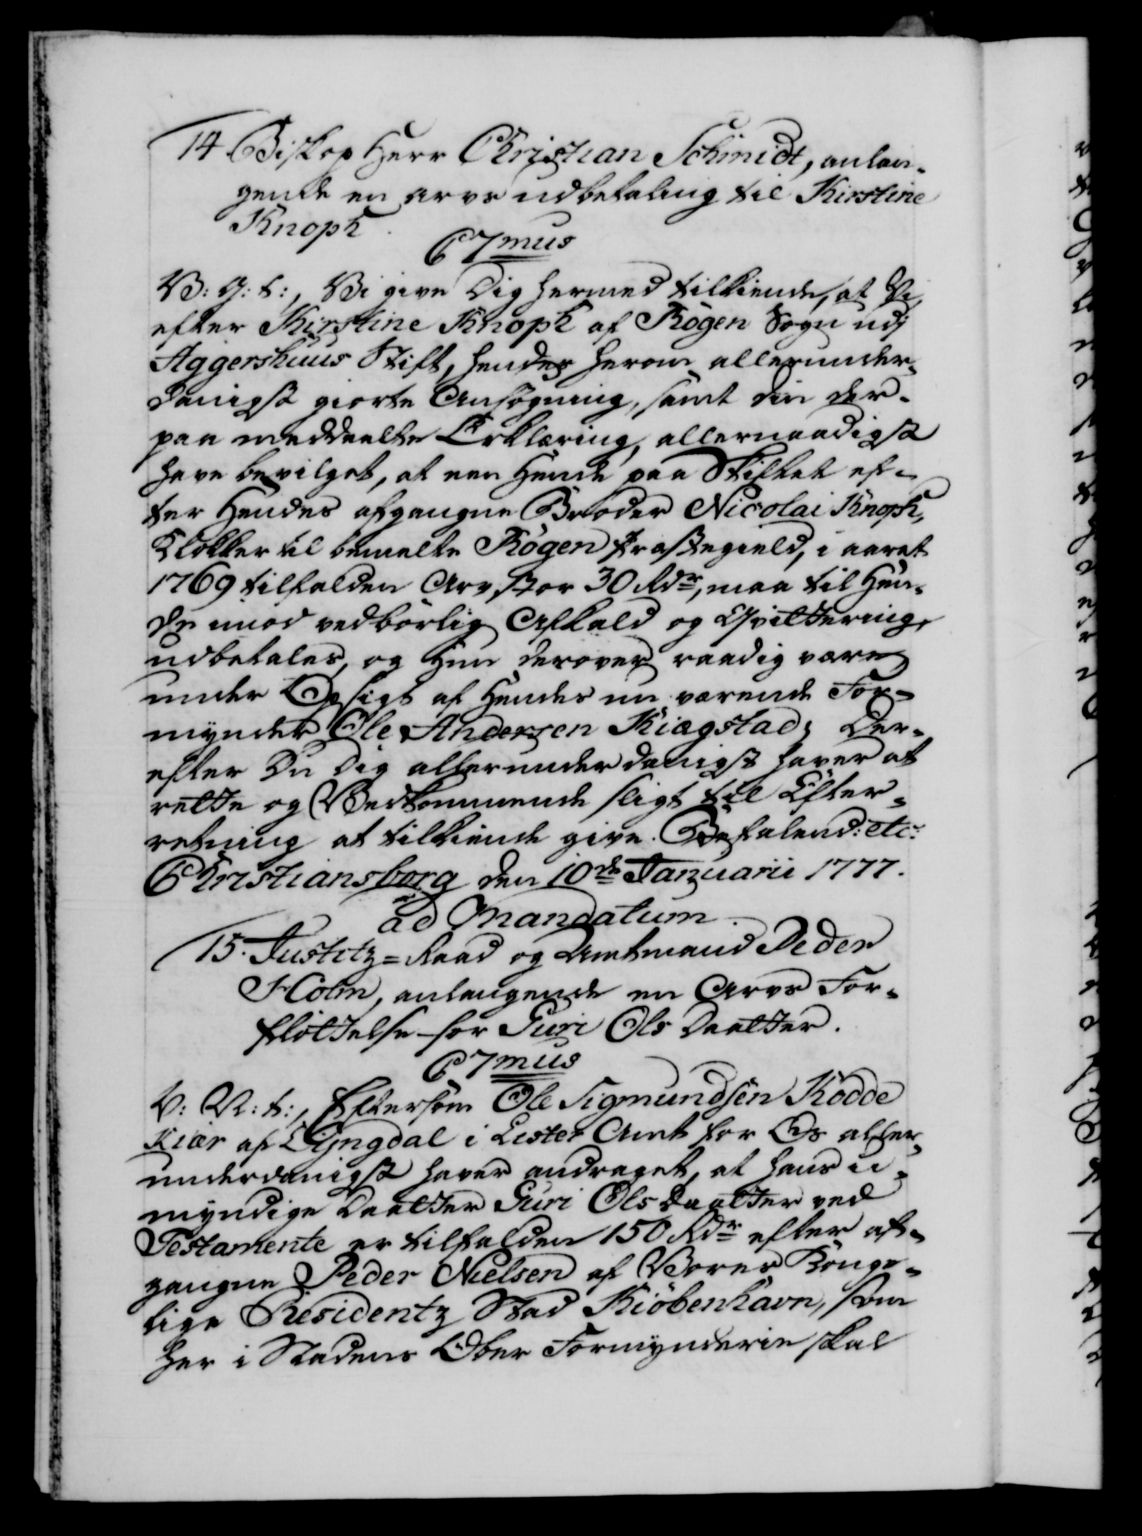 14. Biskop Herr Christian Schmidt, anlan-
gende en arvs udbetaling til Kirstine
Knoph.
C7mus
V: G: T:, Vi give Dig hermed tilkiende, at Vi,
efter Kirstine Knoph af Røgen Sogn udj
Aggershuus Stift, hendes herom allerunder-
danigst giorte Ansøgning, samt din der-
paa meddeelte Erklæring, allernaadigst
have bevilget, at een Hende paa Skiftet ef-
ter Hendes afgangne Broder Nicolai Knoph,
Klokker til bemelte Røgen Præstegield, i aaret
1769 tilfalden Arv, stor 30 Rdr, maa til Hen-
de imod vedbørlig Afkald og Qvittering,
udbetales, og Hun derover raadig være
under Opsigt af Hendes nu værende For-
mynder Ole Andersen Kiægstad; Der-
efter Du Dig allerunderdanigst haver at
rette og Vedkommende sligt til Efter-
retning at tilkiende give. Befalend: etc:
Christiansborg den 10de Januarii 1777.
ad Mandatum.
15. Justitz-Raad og Amtmand Peder
Holm, anlangende en Arvs For-
fløttelse for Guri Ols Daatter.
C7mus
V: G: T:, Eftersom Ole Sigmundsen Rødde
Kiær af Lÿngdal i Lister Amt for Os aller-
underdanigst haver andraget, at hans u-
myndige Daatter Guri Ols Daatter ved
Testamente er tilfalden 150 Rdr efter af-
gangne Peder Nielsen af Vores Konge-
lige Residentz Stad Kiøbenhavn, som
her i Stadens Ober Formynderie skal